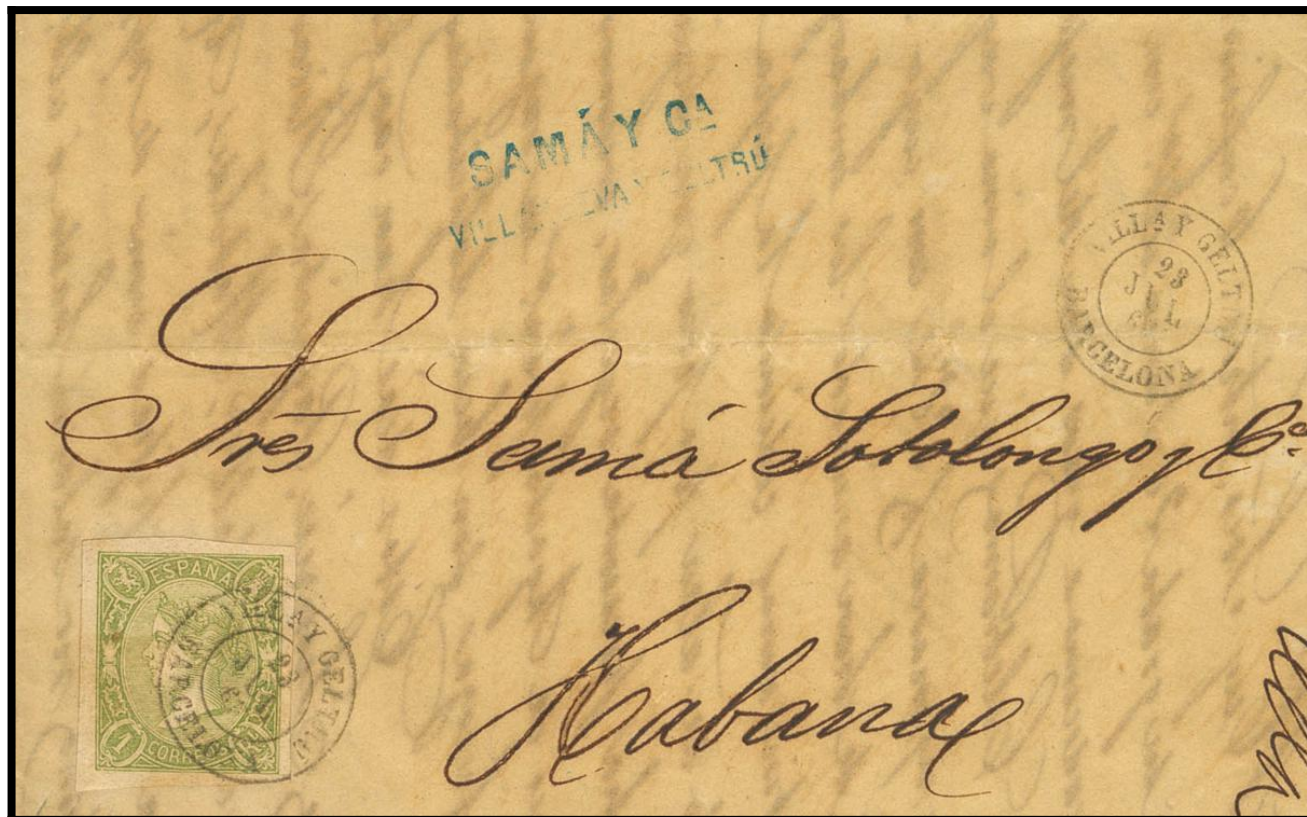 SAMÁ Y Cª
VILLANUEVA Y GELTRÚ
VILLª Y GELTRU
23
JUL
BARCELONA
Sres Samá Sotolongo y Cª
Habana
ESPAÑA
1 CORREOS 1 Rl
VILLª Y GELTRU
23
BARCELONA